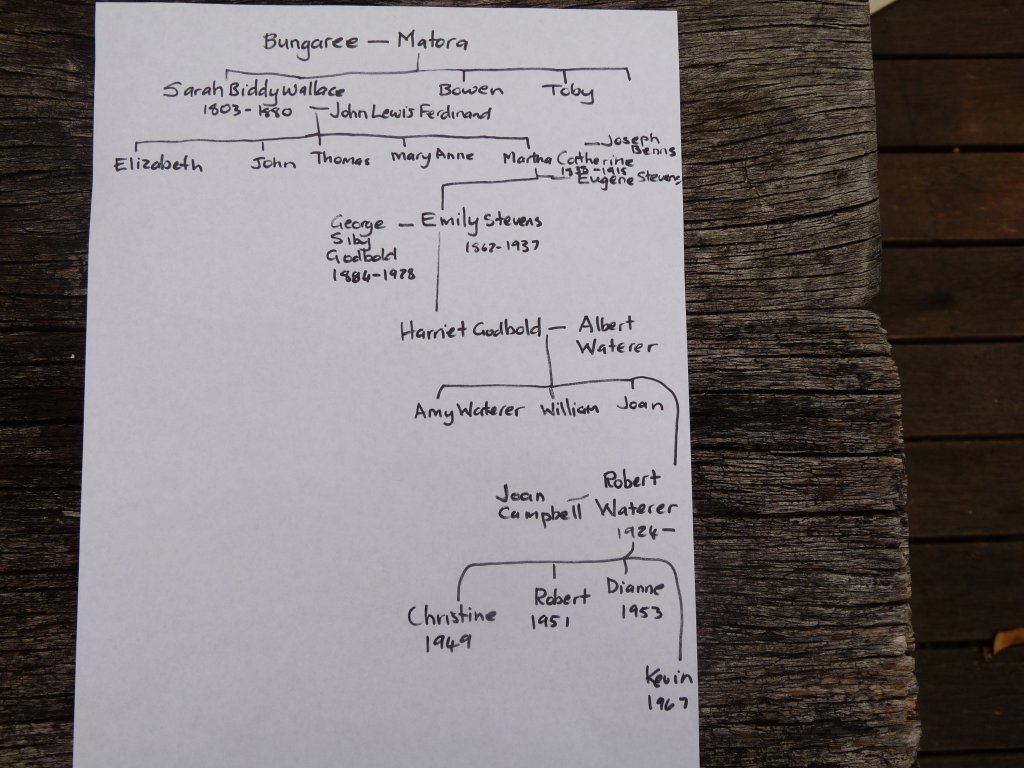 Bungaree — Matora
Sarah Biddy Wallace Bowen Toby
1803-1880 — John Lewis Ferdinand
Joseph
Benns
Elizabeth John Thomas Mary Anne Martha Catherine
Eugene Stevens
George — Emily Stevens
Siby 1867-1937
Godbold
1884-1928
Harriet Godbold — Albert
Waterer
Amy Waterer William Joan
Joan — Robert
Campbell Waterer
1924-
Christine Robert Dianne
1949 1951 1953
Kevin
1967